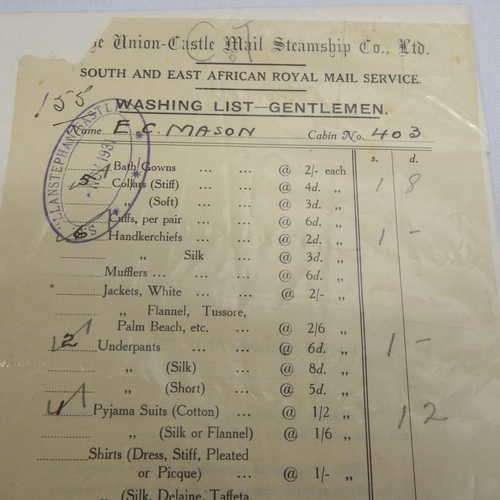 The Union-Castle Mail Steamship Co., Ltd.
SOUTH AND EAST AFRICAN ROYAL MAIL SERVICE.
155
WASHING LIST—GENTLEMEN.
Name E. C. MASON Cabin No. 403
LLANSTEPHAN CASTLE
NOV 1931
s. d.
Bath Gowns ... ... @ 2/- each
5 Collars (Stiff) ... @ 4d. „ 1 8
„ (Soft) ... @ 3d. „
Cuffs, per pair ... @ 6d. „
6 Handkerchiefs ... @ 2d. „ 1 -
„ Silk ... @ 3d. „
Mufflers ... ... @ 6d. „
Jackets, White ... @ 2/- „
„ Flannel, Tussore,
Palm Beach, etc. ... @ 2/6 „
2 Underpants ... @ 6d. „ 1 -
„ (Silk) ... @ 8d. „
„ (Short) ... @ 5d. „
Pyjama Suits (Cotton) ... @ 1/2 „ 1 2
„ (Silk or Flannel) @ 1/6 „
Shirts (Dress, Stiff, Pleated
or Picque) ... @ 1/- „
„ (Silk, Delaine, Taffeta